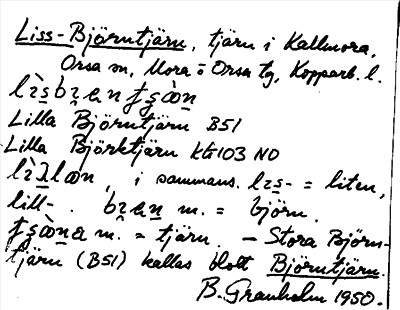 Liss-Björntjärn, tjärn i Kallmora,
Orsa sn, Mora o Orsa tg, Kopparb. l.
Lilla Björntjärn B51
Lilla Björktjärn Kk103 NO
i sammans. = liten,
lill-. m. = björn.
m. = tjärn. – Stora Björn-
tjärn (B51) kallas blott Björntjärn.
B. Granholm 1950.